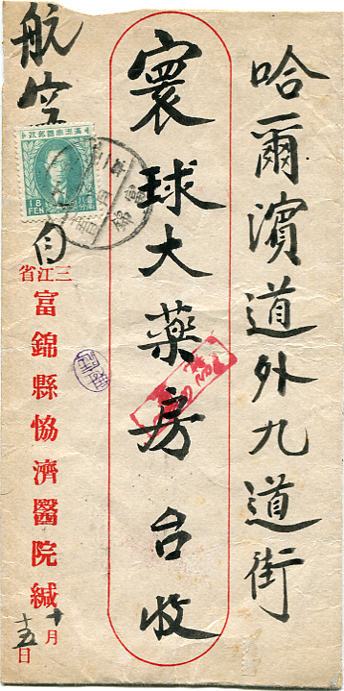 哈爾濱道外九道街
寰球大藥房 台收
航空
自
三江省
富錦縣恊濟醫院緘
十月
十五日
滿洲帝國郵政
18
FEN